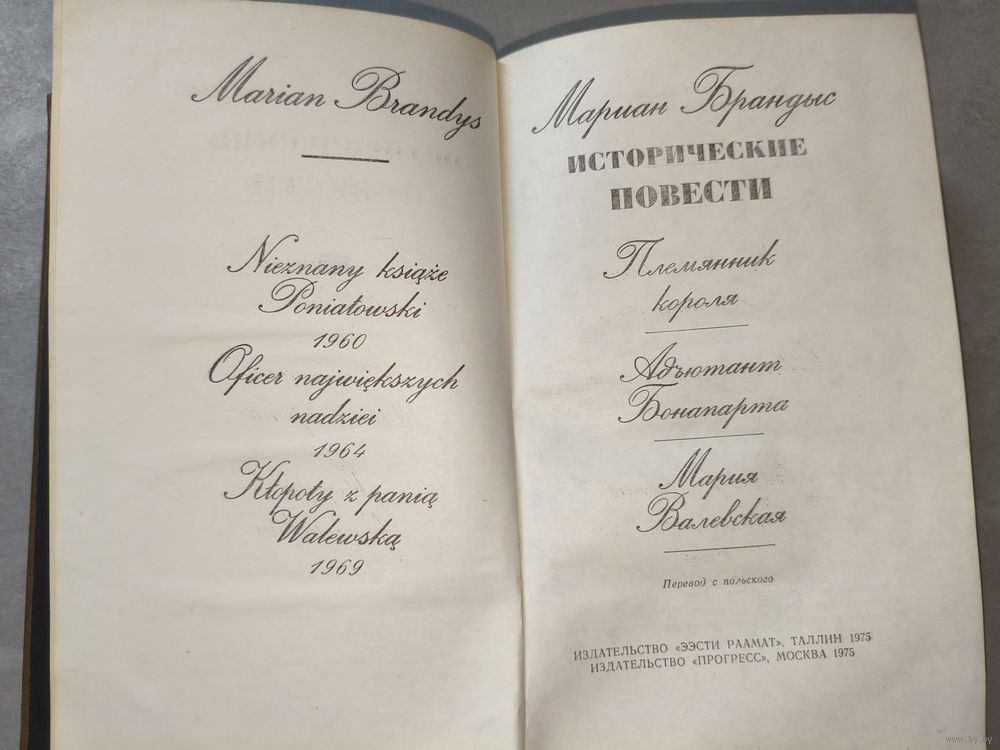 Marian Brandys
Nieznany książe
Poniatowski
1960
Oficer największych
nadziei
1964
Kłopoty z panią
Walewską
1969
Мариан Брандыс
ИСТОРИЧЕСКИЕ
ПОВЕСТИ
Племянник
короля
Адъютант
Бонапарта
Мария
Валевская
Перевод с польского
ИЗДАТЕЛЬСТВО «ЭЭСТИ РААМАТ», ТАЛЛИН 1975
ИЗДАТЕЛЬСТВО «ПРОГРЕСС», МОСКВА 1975
www.ay.by